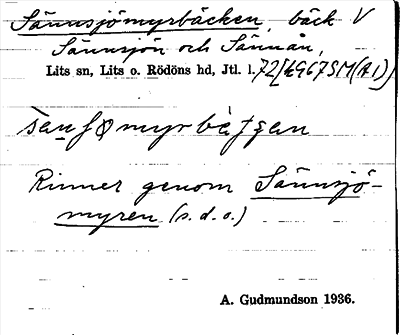 Sännsjömyrbäcken, bäck V
Sännsjön och Sännån,
Lits sn, Lits o. Rödöns hd, Jtl. l.
Rinner genom Sännsjö-
myren (s.d.o.)
A. Gudmundson 1936.